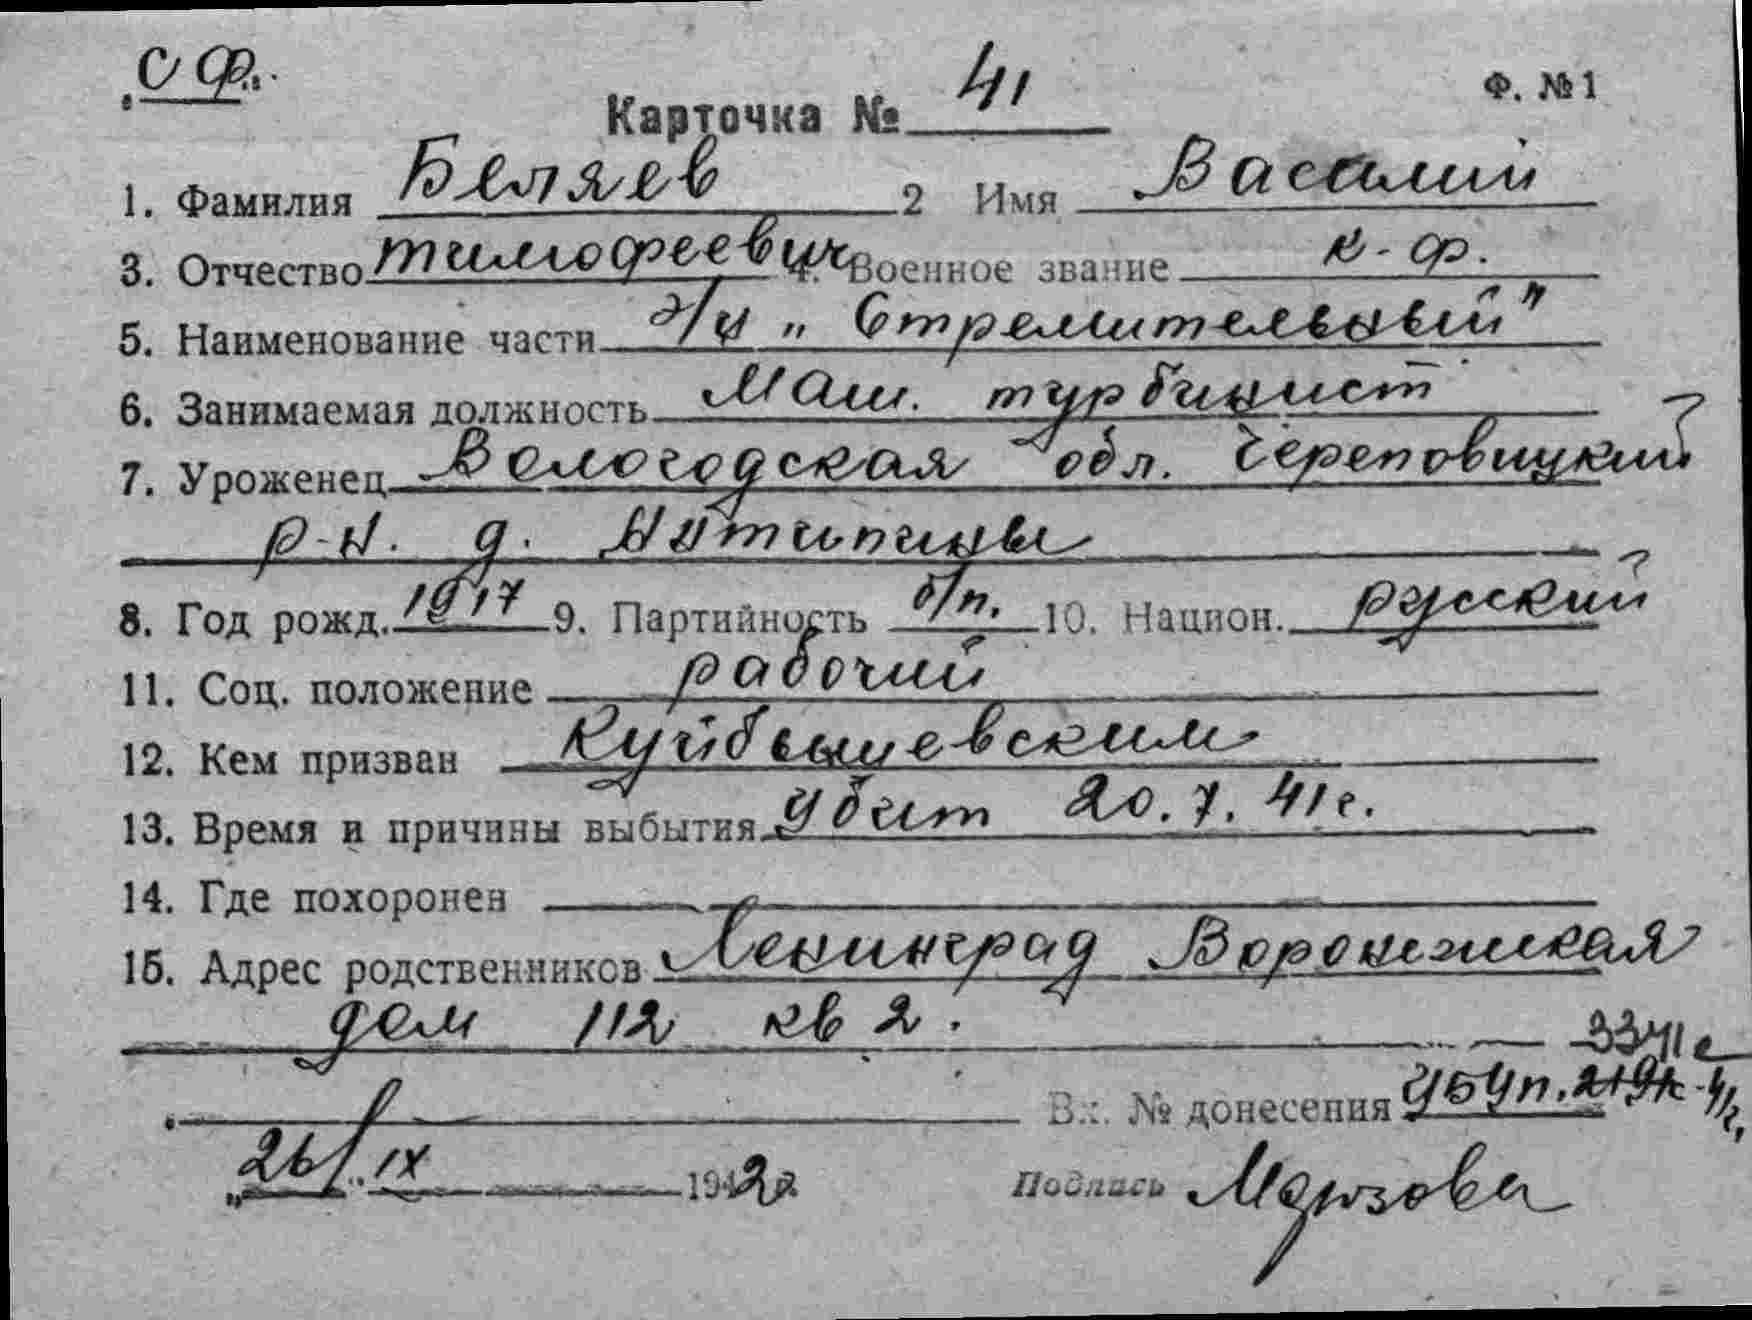 С Ф.
Карточка № 41 Ф. № 1
1. Фамилия Беляев 2 Имя Василий
3. Отчество Тимофеевич 4. Военное звание к-ф.
5. Наименование части э/м „Стремительный"
6. Занимаемая должность Маш. турбинист
7. Уроженец Вологодская обл. Череповицкий
р-н. д.
8. Год рожд. 1917 9. Партийность б/п. 10. Национ. русский
11. Соц. положение рабочий
12. Кем призван Куйбышевским
13. Время и причины выбытия Убит 20.7.41г.
14. Где похоронен
15. Адрес родственников Ленинград Воронежская
дом 112 кв 2.
Вх. № донесения
„26" IX 1942г. Подпись